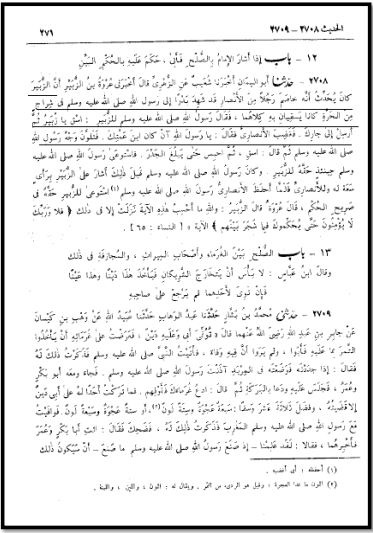 الحديث ٢٧٠٨ - ٢٧٠٩ ٢٧١
١٢ - باب إذا أشار الإمام بالصُّلحِ فأبى، حَكَمَ عليه بالحُكمِ البَيِّن
٢٧٠٨ - حدّثنا أبو اليمان أخبرنا شُعيبٌ عنِ الزُّهريِّ قال أخبرني عُروةُ بنُ الزُّبَيرِ أنَّ الزُّبَيرَ
كانَ يُحدِّثُ أنَّهُ خاصَمَ رجُلاً مِنَ الأنصارِ قد شَهِدَ بَدراً إلى رسولِ الله صلى الله عليه وسلم في شِراجٍ
مِنَ الحَرَّةِ كانا يَسقِيانِ بهِ كِلاهُما، فقال رسولُ الله صلى الله عليه وسلم للزُّبيرِ: اسقِ يا زُبَيرُ ثُمَّ
أَرسِلْ إلى جارِك. فغَضِبَ الأنصاريُّ فقال: يا رسولَ الله آن كانَ ابنَ عَمَّتِكَ. فتَلَوَّنَ وَجهُ رسولِ الله
صلى الله عليه وسلم ثُمَّ قال: اسقِ، ثُمَّ احبِسْ حتى يَبلُغَ الجَدْرَ. فاستَوعى رسولُ الله صلى الله عليه وسلم
صلى الله عليه وسلم حِينَئذٍ حَقَّهُ للزُّبَيرِ. وكانَ رسولُ الله صلى الله عليه وسلم قبلَ ذلك أشارَ على الزُّبَيرِ برأيٍ
سَعَةً له وللأنصاريِّ فلمّا أحفَظَ الأنصاريُّ رسولَ الله صلى الله عليه وسلم(١) استَوعى للزُّبَيرِ حَقَّهُ في
صريحِ الحُكمِ، قال عُروةُ قال الزُّبيرُ: واللهِ ما أحسِبُ هذهِ الآيةَ نَزَلَتْ إلا في ذلك ﴿فلا وَرَبِّكَ
لا يُؤمِنُونَ حتّى يُحَكِّموكَ فيما شَجَرَ بَينَهم﴾ الآية [النساء: ٦٥].
١٣ - باب الصُّلحِ بينَ الغُرَماءِ وأصحابِ المِيراثِ، والمُجازَفةِ في ذلك
وقال ابنُ عبّاسٍ: لا بأسَ أنْ يَتَخارَجَ الشَّرِيكانِ فيَأخُذَ هذا دَيناً وهذا عَيناً
فإن تَوِيَ لأحدِهِما لم يَرجِعْ على صاحبِه
٢٧٠٩ - حدّثني محمدُ بنُ بَشّارٍ حدَّثَنا عبدُ الوَهابِ حدَّثَنا عُبَيدُ اللهِ عن وَهبِ بنِ كَيسانَ
عن جابرِ بنِ عبدِ اللهِ رَضِيَ اللهُ عنهما قال « تُوُفِّيَ أبي وعليهِ دَينٌ، فعَرَضتُ على غُرَمائهِ أن يَأخُذوا
التَّمرَ بما عليهِ فأبَوا، ولم يَرَوا أنَّ فيهِ وَفاءً، فأتيتُ النبيَّ صلى الله عليه وسلم فذكرتُ ذلك لهُ
فقال: إذا جَدَدْتَهُ فوَضَعتَهُ في المِربَدِ آذَنتَ رسولَ الله صلى الله عليه وسلم. فجاءَ ومعَهُ أبو بَكرٍ
وعُمَرُ، فجَلَسَ عليهِ ودَعا بالبَرَكةِ ثُمَّ قال: ادعُ غُرَماءَكَ فأَوفِهِم، فما تَرَكتُ أحداً لهُ على أبي دَينٌ
إلا قضَيتُهُ، وفَضَلَ ثَلاثةَ عَشَرَ وَسْقاً: سَبعةٌ عَجوةٌ وسِتّةٌ لَونٌ(٢)، أو سِتّةٌ عَجوةٌ وسَبعةٌ لَونٌ. فوافَيتُ
معَ رسولِ الله صلى الله عليه وسلم المَغرِبَ فذكرتُ ذلك لهُ، فضَحِكَ فقال: ائتِ أبا بَكرٍ وعُمَرَ
فأخبِرْهُما، فقالا: لقد عَلِمنا - إذ صَنَعَ رسولُ الله صلى الله عليه وسلم ما صَنَعَ - أنْ سَيكونُ ذلك
(١) أحفظه: أي أغضبه.
(٢) اللون ما عدا العجوة، وقيل هو الرديء من التمر. ويقال له: اللون، واللين، واللينة.